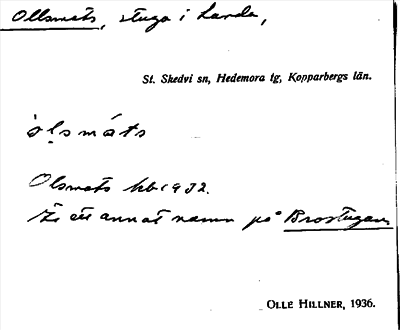 Ollsmats, stuga i Larda,
St. Skedvi sn, Hedemora tg, Kopparbergs län.
òl̥smáts
Olsmats kb 1932.
Är ett annat namn på Brostugan
OLLE HILLNER, 1936.